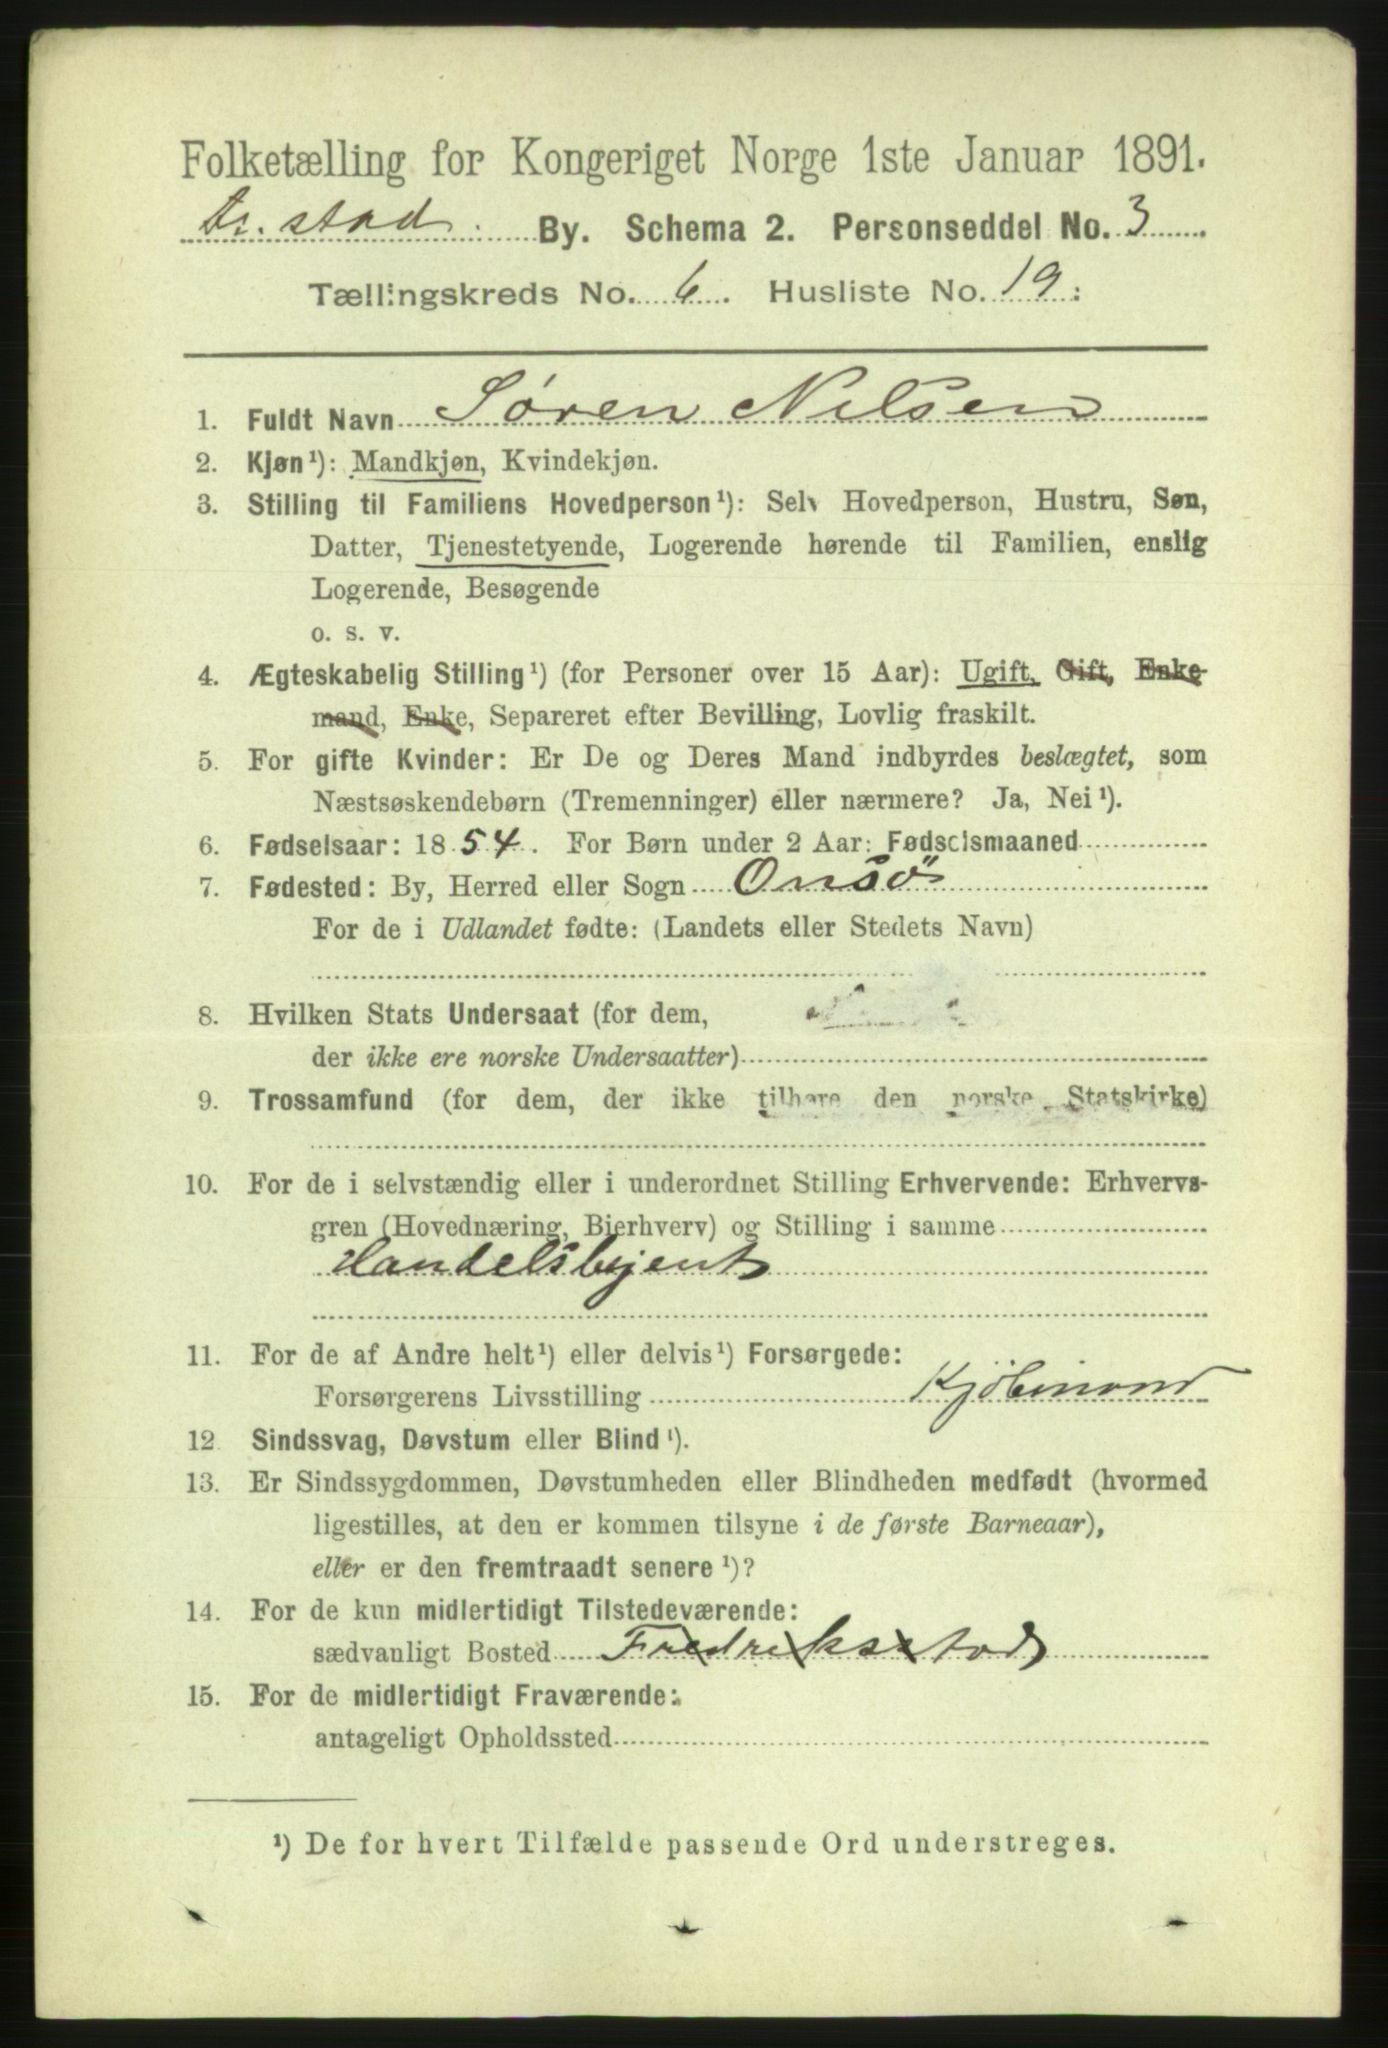 Folketælling for Kongeriget Norge 1ste Januar 1891.
Fr.stad. By. Schema 2. Personseddel No. 3
Tællingskreds No. 6. Husliste No. 19:
1. Fuldt Navn Søren Nilsen
2. Kjøn¹): Mandkjøn, Kvindekjøn.
3. Stilling til Familiens Hovedperson¹): Selv Hovedperson, Hustru, Søn,
Datter, Tjenestetyende, Logerende hørende til Familien, enslig
Logerende, Besøgende
o. s. v.
4. Ægteskabelig Stilling¹) (for Personer over 15 Aar): Ugift, Gift, Enke-
mand, Enke, Separeret efter Bevilling, Lovlig fraskilt.
5. For gifte Kvinder: Er De og Deres Mand indbyrdes beslægtet, som
Næstsøskendebørn (Tremenninger) eller nærmere? Ja, Nei¹).
6. Fødselsaar: 1854. For Børn under 2 Aar: Fødselsmaaned
7. Fødested: By, Herred eller Sogn Onsö
For de i Udlandet fødte: (Landets eller Stedets Navn)
8. Hvilken Stats Undersaat (for dem,
der ikke ere norske Undersaatter)
9. Trossamfund (for dem, der ikke tilhøre den norske Statskirke)
10. For de i selvstændig eller i underordnet Stilling Erhvervende: Erhvervs-
gren (Hovednæring, Bierhverv) og Stilling i samme
Handelsbejent
11. For de af Andre helt¹) eller delvis¹) Forsørgede:
Forsørgerens Livsstilling Kjöbmand
12 Sindssvag, Døvstum eller Blind¹).
13. Er Sindssygdommen, Døvstumheden eller Blindheden medfødt (hvormed
ligestilles, at den er kommen tilsyne i de første Barneaar),
eller er den fremtraadt senere¹)?
14. For de kun midlertidigt Tilstedeværende:
sædvanligt Bosted Fredriksstad
15. For de midlertidigt Fraværende:
antageligt Opholdssted
¹) De for hvert Tilfælde passende Ord understreges.